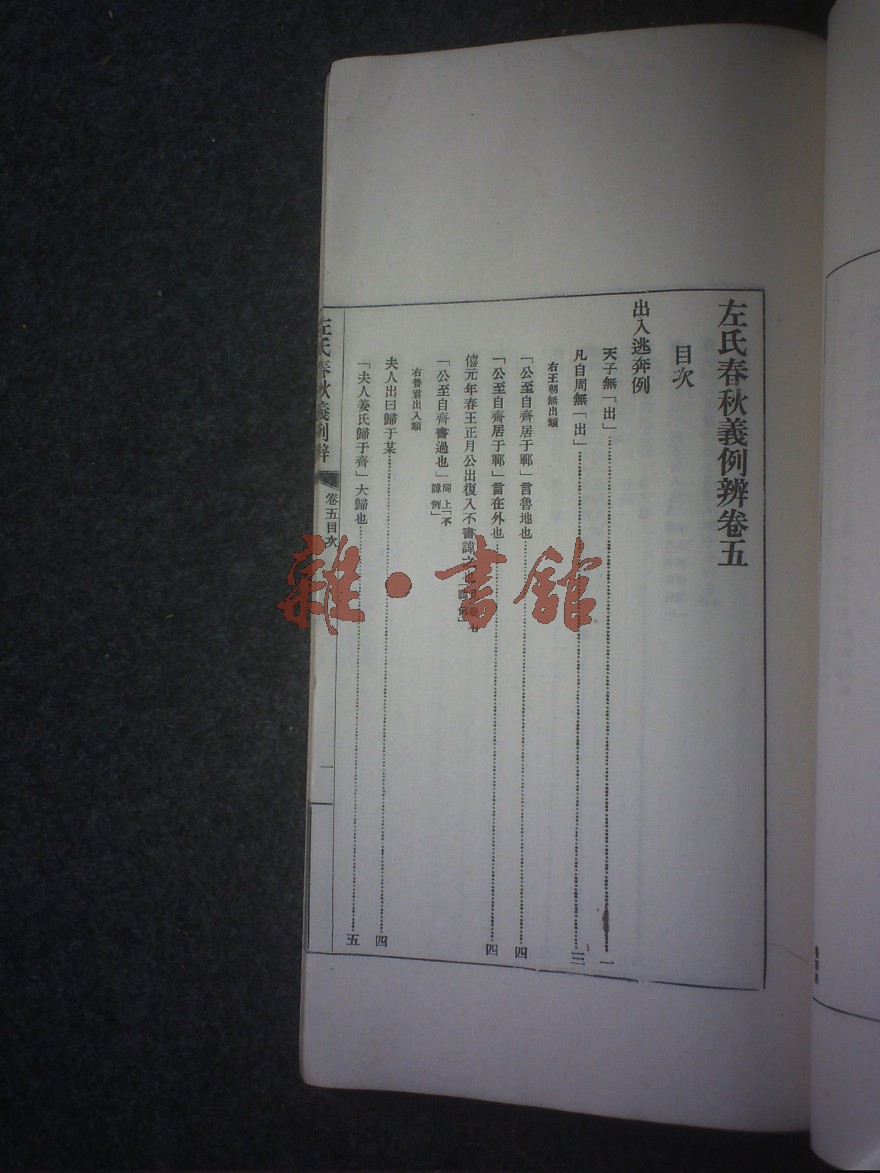 左氏春秋義例辨卷五
目次
出入逃奔例
天子無「出」 一
凡自周無「出」 三
右王朝無出類
「公至自齊居于鄆」言魯地也 四
「公至自齊居于鄆」言在外也 四
僖元年春王正月公出復入不書諱之也
「公至自齊書過也」同上「不諱例」
右魯君出入類
夫人出曰歸于某 四
「夫人姜氏歸于齊」大歸也 五
左氏春秋義例辨
卷五目次
一
雜·書館